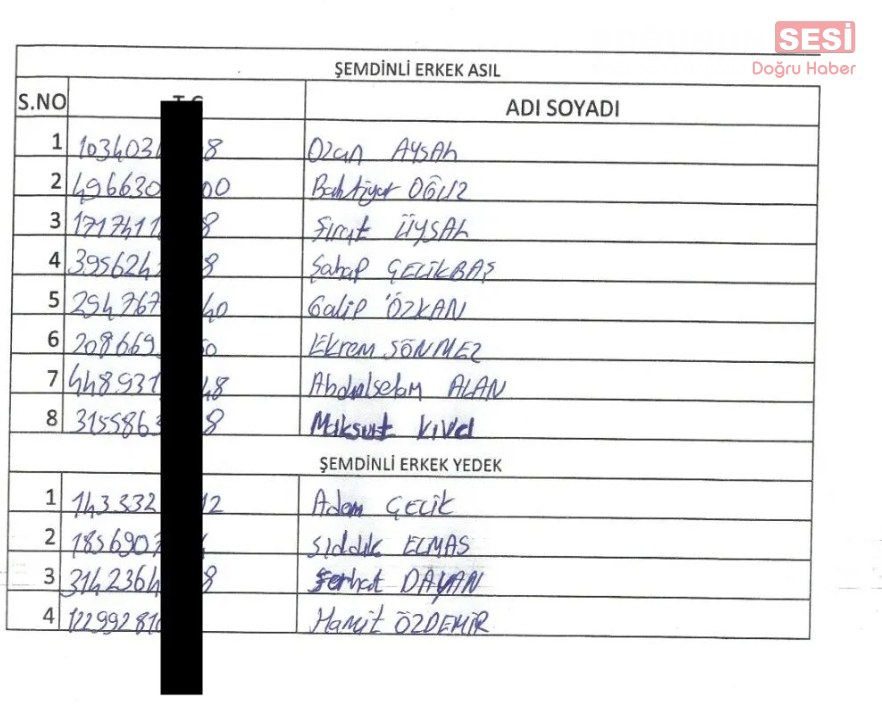 SESİ
Doğru Haber
ŞEMDİNLİ ERKEK ASIL
S.NO T.C ADI SOYADI
1 1034031 8 Ozan AYSAL
2 496630 00 Bahtiyar OĞUZ
3 1717411 8 Fırat UYSAL
4 395624 8 Şahap ÇELİKBAŞ
5 294767 40 Galip ÖZKAN
6 208669 50 Ekrem SÖNMEZ
7 448931 48 Abdulselam ALAN
8 3155863 8 Maksut
ŞEMDİNLİ ERKEK YEDEK
1 143332 12 Adem ÇELİK
2 185690 Sıddık ELMAS
3 314236 8 Ferhat DAYAN
4 12299281 Hamit ÖZDEMİR